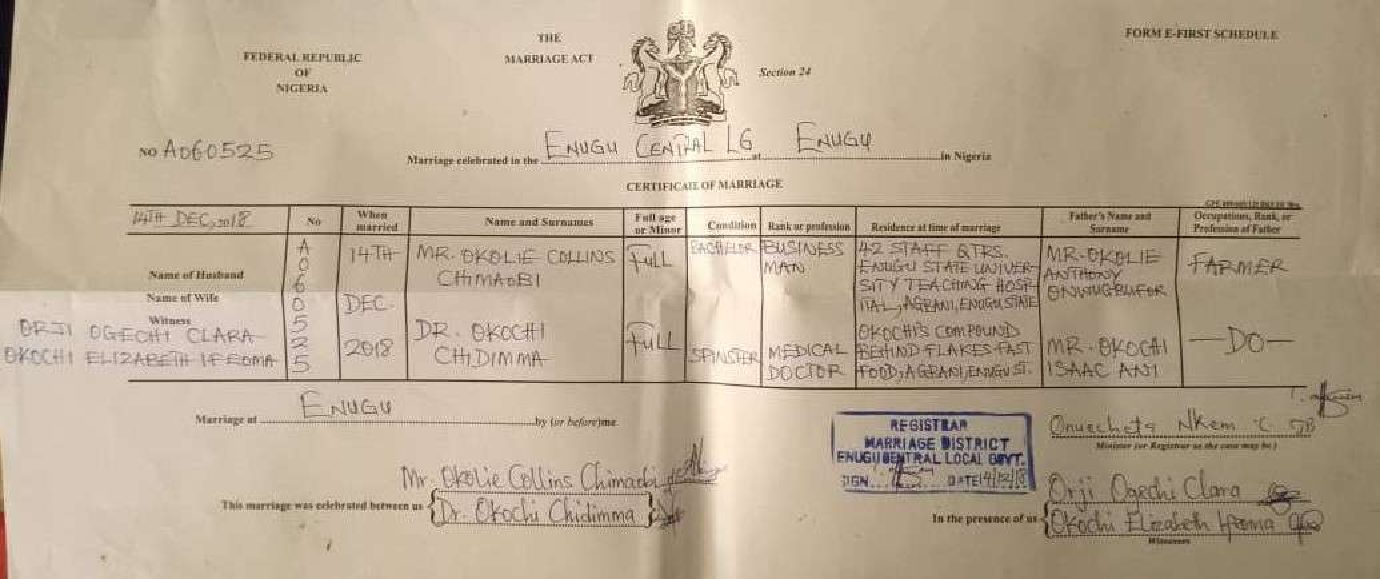 FORM E-FIRST SCHEDULE
FEDERAL REPUBLIC
OF
NIGERIA
THE
MARRIAGE ACT
Section 24
NO A060525
Marriage celebrated in the ENUGU CENTRAL LG at ENUGU in Nigeria
CERTIFICATE OF MARRIAGE
14TH DEC, 2018
No
When married
Name and Surnames
Full age or Minor
Condition
Rank or profession
Residence at time of marriage
Father's Name and Surname
Occupations, Rank, or Profession of Father
Name of Husband
A060525
14TH
MR. OKOLIE COLLINS
CHIMAOBI
FULL
BACHELOR
BUSINESS
MAN
42 STAFF QTRS.
ENUGU STATE UNIVER-
SITY TEACHING HOSP-
ITAL, AGBANI, ENUGU STATE
MR. OKOLIE
ANTHONY
FARMER
Name of Wife
DEC.
2018
DR. OKOCHI
CHIDIMMA
FULL
SPINSTER
MEDICAL
DOCTOR
OKOCHI'S COMPOUND
BEHIND FLAKES FAST
FOOD, AGBANI, ENUGU ST.
MR. OKOCHI
ISAAC ANI
—DO—
Witness
ORJI OGECHI CLARA
OKOCHI ELIZABETH IFEOMA
Marriage at ENUGU by (or before) me.
Nkem C
Minister (or Registrar as the case may be)
REGISTRAR
MARRIAGE DISTRICT
ENUGU CENTRAL LOCAL GOVT.
SIGN. DATE 14/12/18
This marriage was celebrated between us
Mr Okolie Collins Chimaobi
Dr. Okochi Chidimma
In the presence of us
Orji Ogechi Clara
Okochi Elizabeth Ifeoma
Witnesses